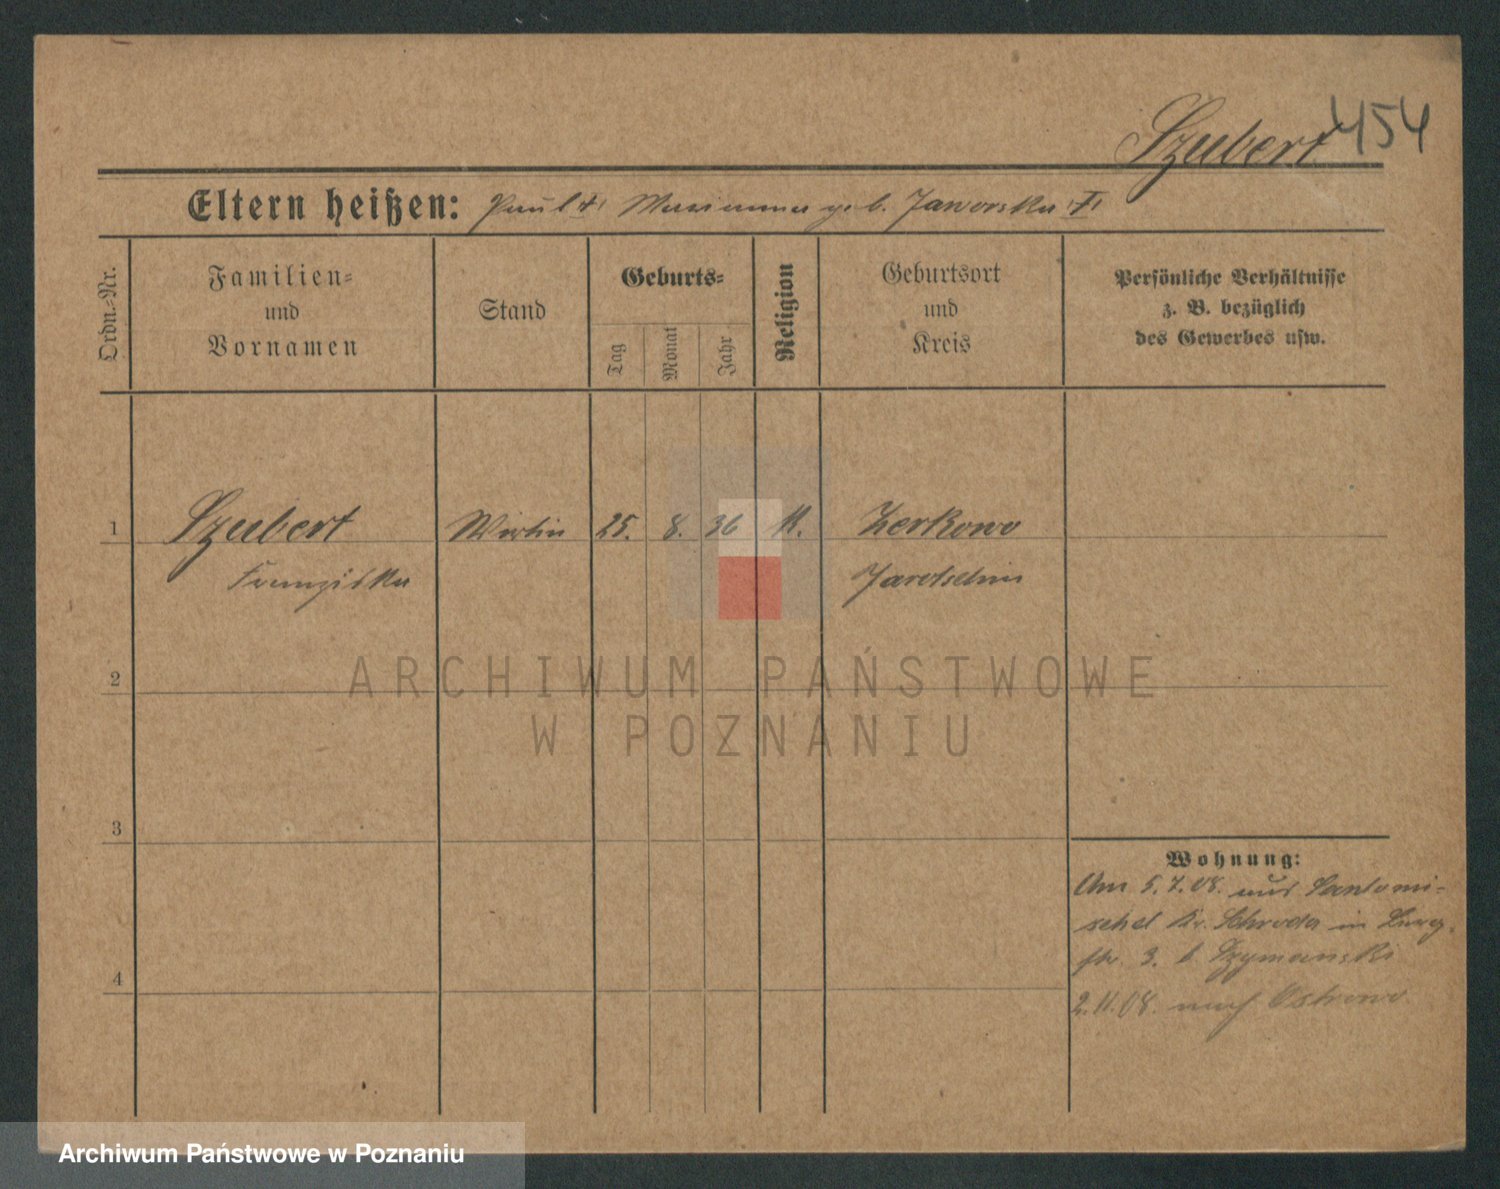 Szubert 454
Eltern heißen: Paul † Marianna geb. Jaworska †
Ordn.-Nr.
Familien-
und
Vornamen
Stand
Geburts-
Tag
Monat
Jahr
Religion
Geburtsort
und
Kreis
Persönliche Verhältnisse
z. B. bezüglich
des Gewerbes usw.
1 Szubert Wirtin 25. 8. 36 k. Zerkowo
Franziska Jarotschin
ARCHIWUM PAŃSTWOWE
W POZNANIU
2
3
4
Wohnung:
Am 5.7.08. aus Santomi-
schel Kr. Schroda in
str. 3. b. Szymanski
2.11.08. nach Ostrowo
Archiwum Państwowe w Poznaniu